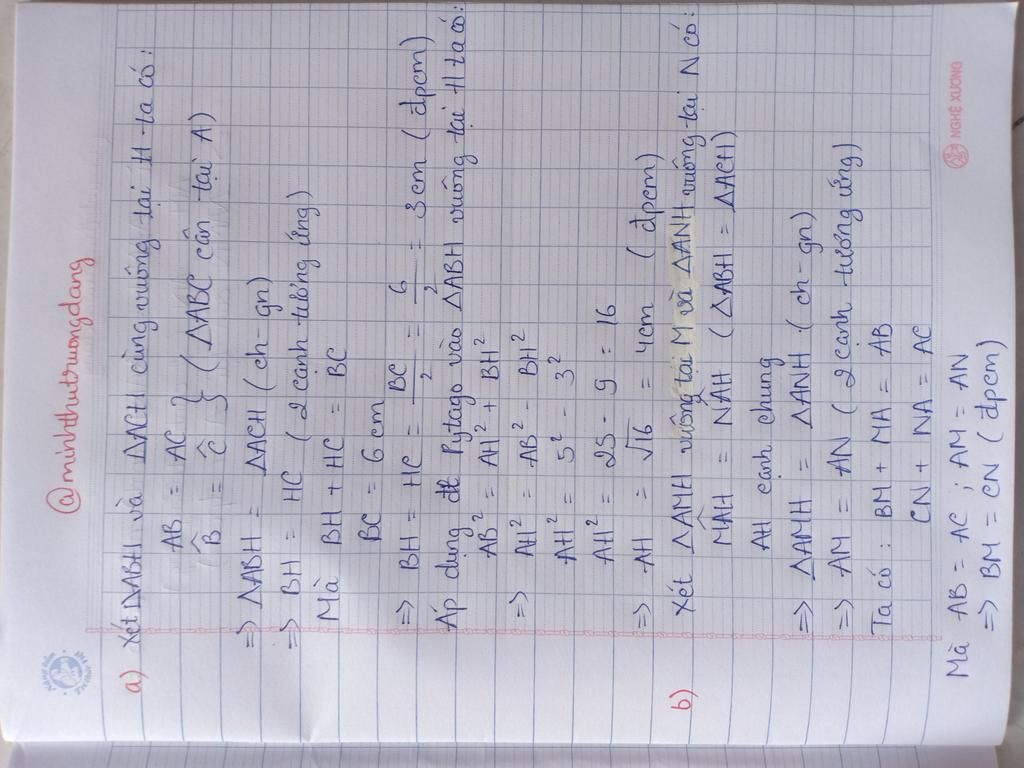 @minhthutruongdang
a) Xét ΔABH và ΔACH cùng vuông tại H ta có:
AB = AC }
B̂ = Ĉ } (ΔABC cân tại A)
=> ΔABH = ΔACH (ch-gn)
=> BH = HC (2 cạnh tương ứng)
Mà BH + HC = BC
BC = 6 cm
=> BH = HC = BC/2 = 6/2 = 3cm (đpcm)
Áp dụng đl Pytago vào ΔABH vuông tại H ta có:
AB² = AH² + BH²
=> AH² = AB² - BH²
AH² = 5² - 3²
AH² = 25 - 9 = 16
=> AH = √16 = 4cm (đpcm)
b) Xét ΔAMH vuông tại M và ΔANH vuông tại N có:
MÂH = NÂH (ΔABH = ΔACH)
AH cạnh chung
=> ΔAMH = ΔANH (ch-gn)
=> AM = AN (2 cạnh tương ứng)
Ta có: BM + MA = AB
CN + NA = AC
Mà AB = AC ; AM = AN
=> BM = CN (đpcm)
NGHỆ XƯƠNG